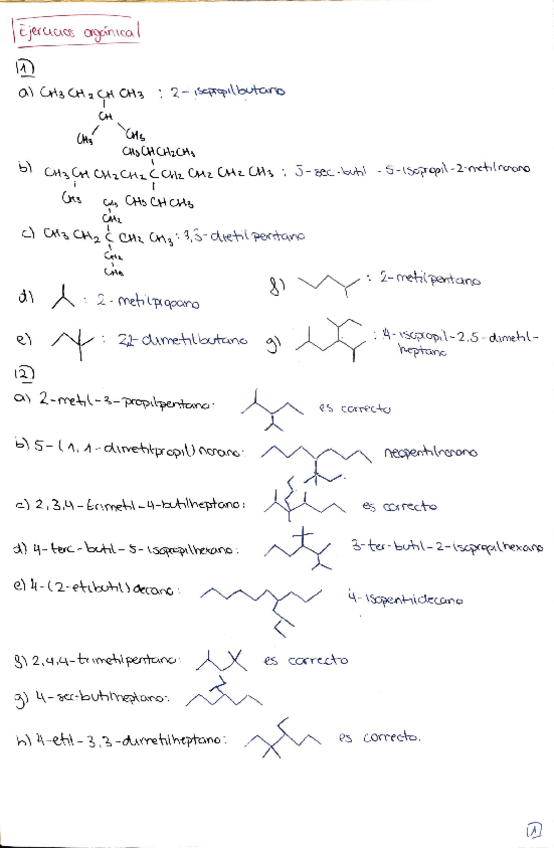 Ejercicios orgánica
1
a) CH3 CH2 CH CH3 : 2-isopropilbutano
CH
CH3 CH3
CH3CHCH2CH3
b) CH3 CH CH2 CH2 C CH2 CH2 CH2 CH3 : 5-sec-butil-5-isopropil-2-metilnonano
CH3 CH3 CH CH3
CH3
CH2
c) CH3 CH2 C CH2 CH3 : 3,3-dietilpentano
CH2
CH3
d) : 2-metilpropano
f) : 2-metilpentano
e) : 2,2-dimetilbutano
g) : 4-isopropil-2,5-dimetil-
heptano
2
a) 2-metil-3-propilpentano: es correcto
b) 5-(1,1-dimetilpropil)nonano: neopentilnonano
c) 2,3,4-trimetil-4-butilheptano: es correcto
d) 4-terc-butil-5-isopropilhexano: 3-ter-butil-2-isopropilhexano
e) 4-(2-etilbutil)decano: 4-isopentildecano
f) 2,4,4-trimetilpentano: es correcto
g) 4-sec-butilheptano:
h) 4-etil-3,3-dimetilheptano: es correcto.
1